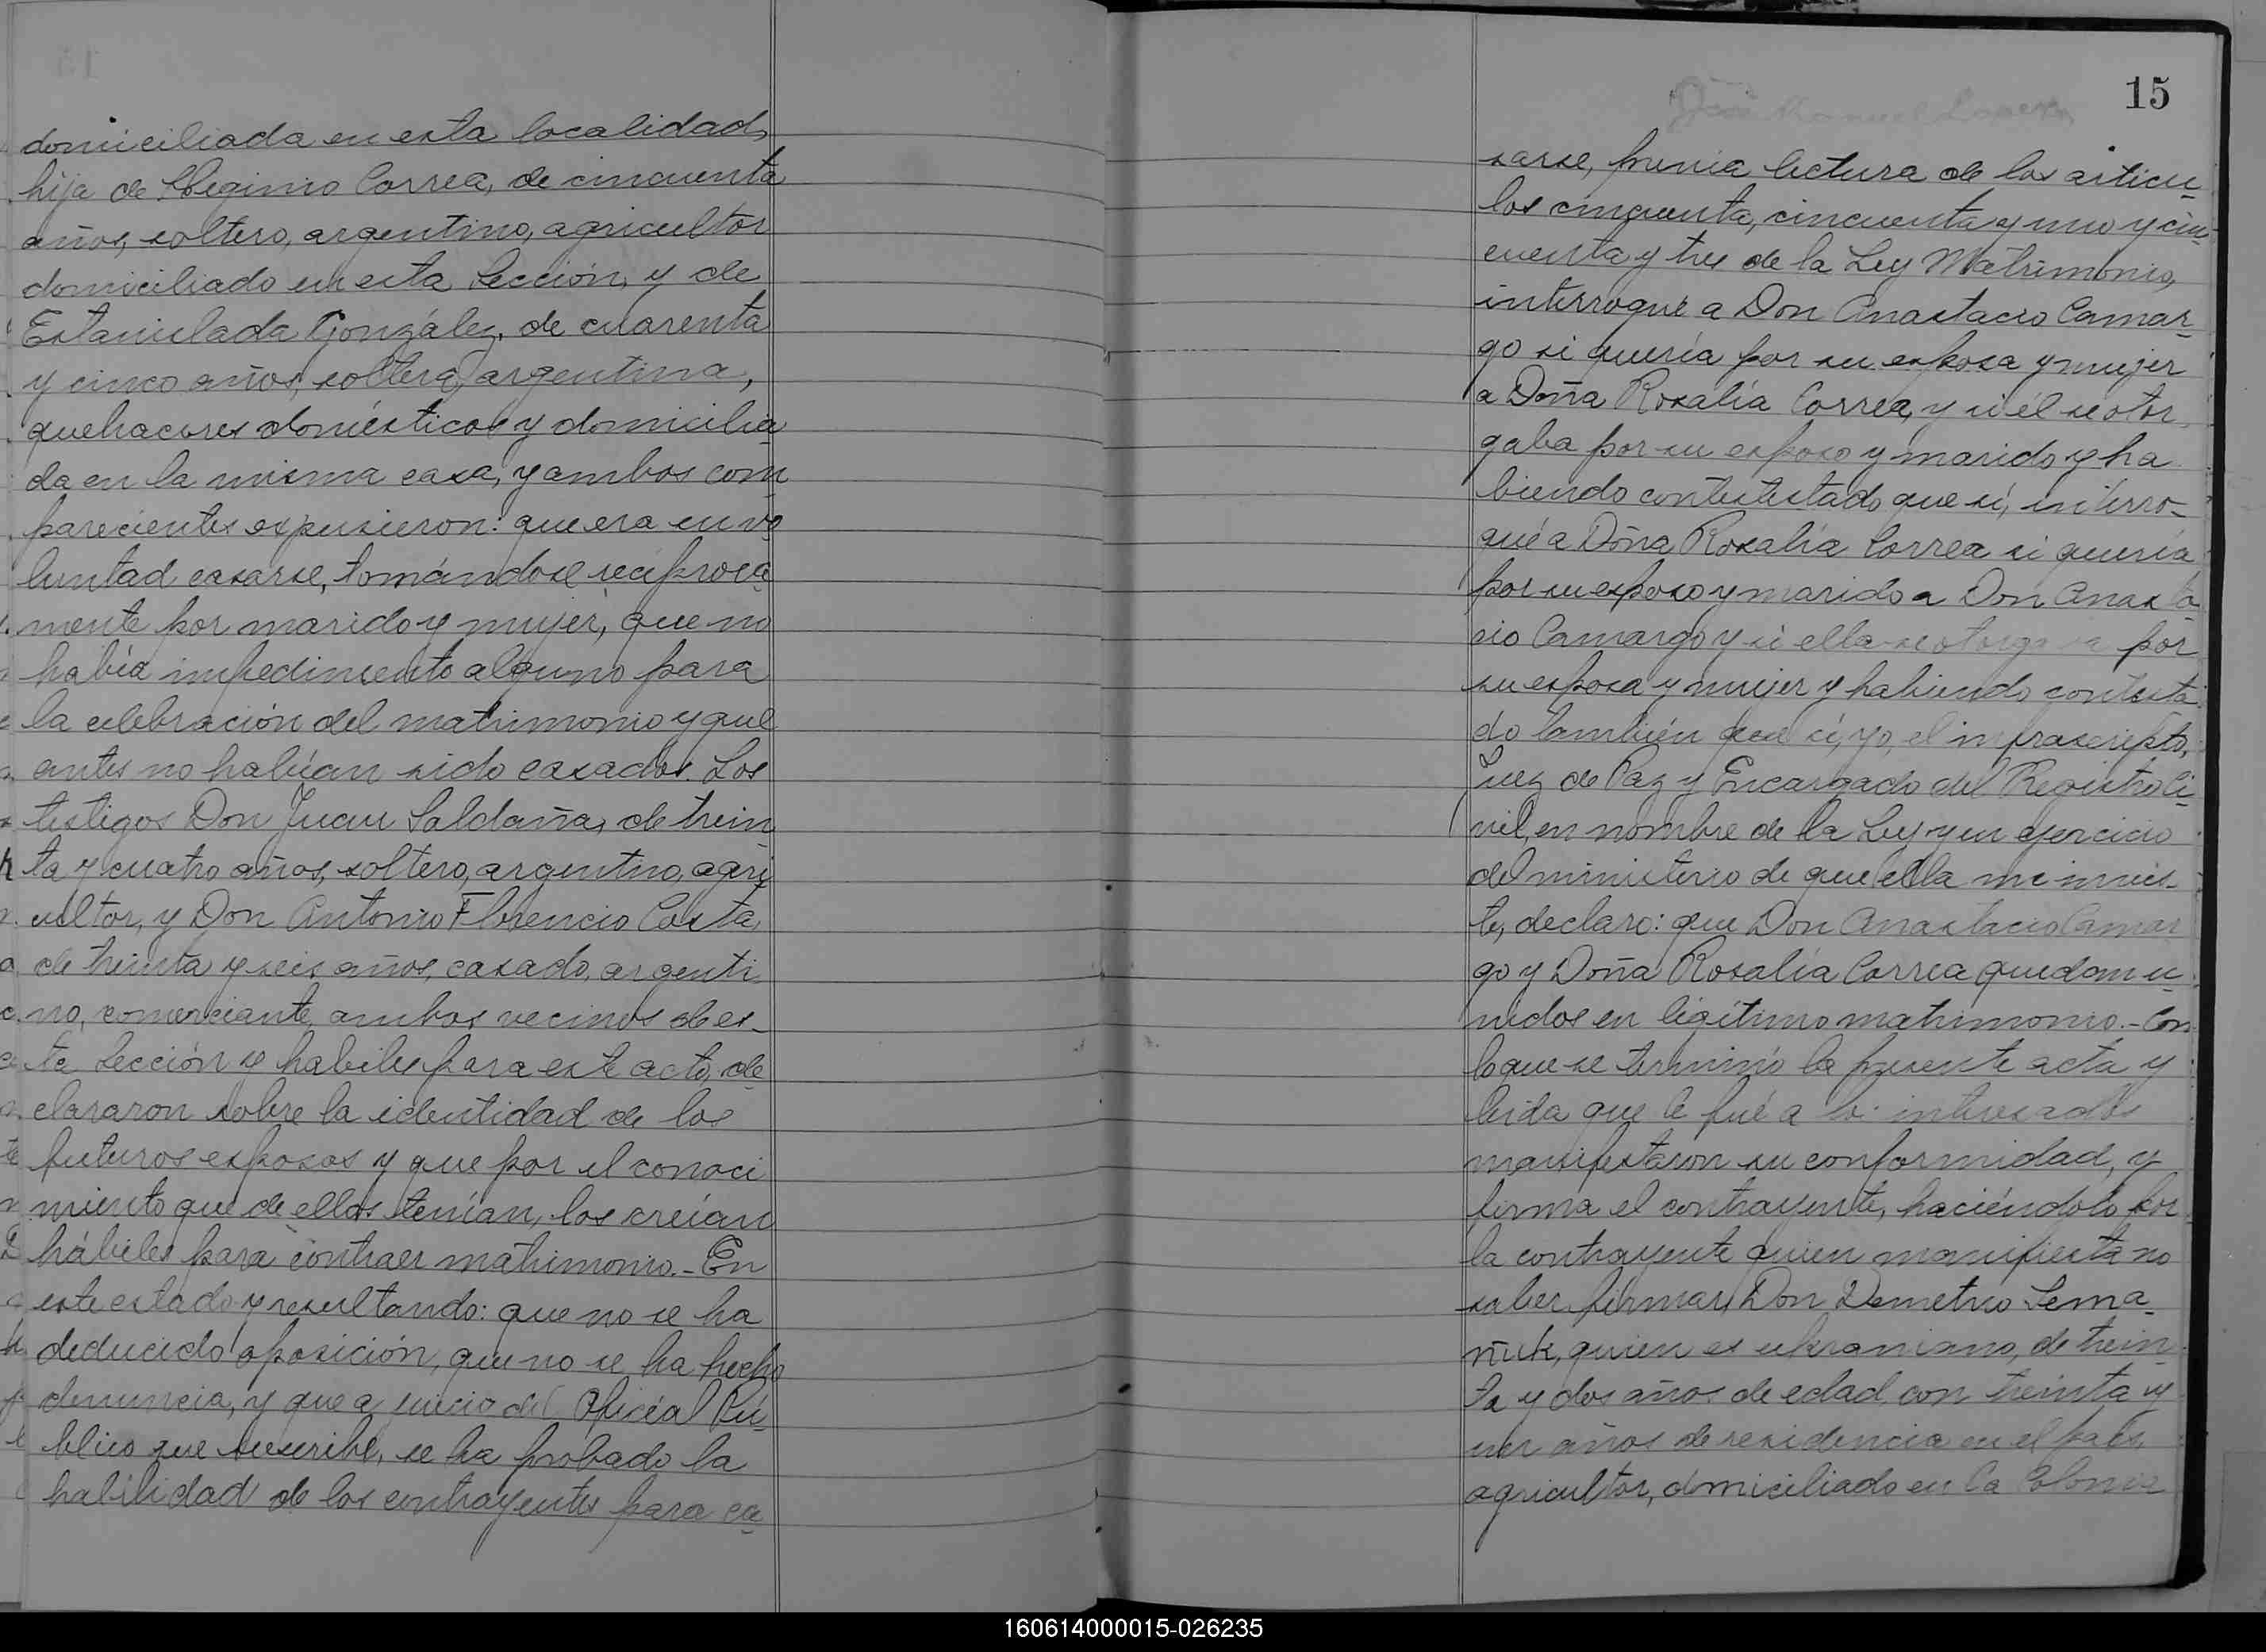 domiciliada en esta localidad,
hija de Higinio Correa, de cincuenta
años, soltero, argentino, agricultor
domiciliado en esta Sección, y de
Estanislada González, de cuarenta
y cinco años, soltera, argentina,
quehaceres domésticos y domicilia
da en la misma casa, y ambos com
parecientes expusieron: que era su vo
luntad casarse, tomándose recíproca
mente por marido y mujer, que no
había impedimento alguno para
la celebración del matrimonio y que
antes no habían sido casados. Los
testigos Don Juan Saldaña, de trein
ta y cuatro años, soltero, argentino, agri
cultor, y Don Antonio Florencio Costa,
de treinta y seis años, casado, argenti
no, comerciante, ambos vecinos de es-
ta Sección y habiles para este acto, de
clararon sobre la identidad de los
futuros esposos y que por el conoci
miento que de ellos tenían, los creían
hábiles para contraer matrimonio.- En
este estado y resultando: que no se ha
deducido oposición, que no se ha hecho
denuncia, y que a juicio del Oficial Pú
blico que suscribe, se ha probado la
habilidad de los contrayentes para ca
15
sarse, previa lectura de los articu
los cincuenta, cincuenta y uno y cin
cuenta y tres de la Ley Matrimonio,
interrogué a Don Anastacio Camar
go si quería por su esposa y mujer
a Doña Rosalía Correa, y si él se otor
gaba por su esposo y marido y ha
biendo contestestado que sí, interro-
gué a Doña Rosalía Correa si quería
por su esposo y marido a Don Anasta
cio Camargo y si ella se otorgaba por
su esposa y mujer y habiendo contesta
do también que sí, yo, el infrascripto,
Juez de Paz y Encargado del Registro Ci
vil, en nombre de la Ley y en ejercicio
del ministerio de que ella me invis-
te, declaro: que Don Anastacio Camar
go y Doña Rosalía Correa quedan u
nidos en legítimo matrimonio.- Con
lo que se terminó la presente acta y
leida que le fué a los interesados
manifestaron su conformidad, y
firma el contrayente, haciéndolo por
la contrayente quien manifiesta no
saber firmar, Don Demetrio Sema
ñuk, quien es ukraniano, de trein
ta y dos años de edad, con treinta y
un años de residencia en el país,
agricultor, domiciliado en la Colonia
160614000015-026235